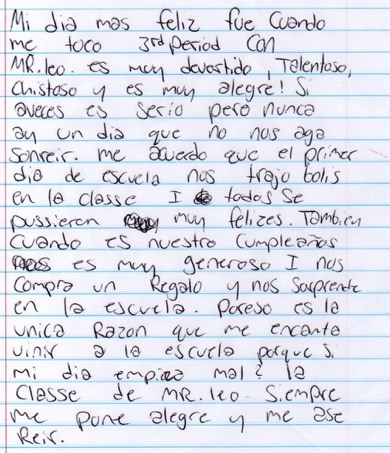 Mi dia mas feliz fue cuando
me toco 3rd Period con
MR.leo. es muy devertido, Talentoso,
chistoso y es muy alegre! Si
aveces es serio pero nunca
ay un dia que no nos aga
sonreir. me acuerdo que el primer
dia de escuela nos trajo bolis
en la classe I todos se
pussieren muy felizes. Tambien
cuando es nuestro cumpleaños
es muy generoso I nos
compra un Regalo y nos sorprente
en la escuela. Poreso es la
unica Razon que me encanta
vinir a la escuela porque si
mi dia empiza mal? la
classe de MR.leo Siempre
me pone alegre y me ase
Reir.